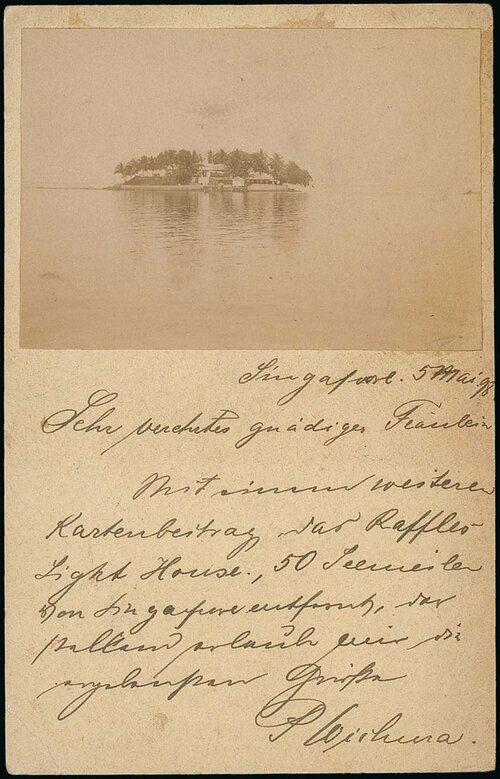 Singapore. 5 Mai 98
Sehr verehrtes gnädiges Fräulein
Mit einem weiteren
Kartenbeitrag, das Raffles
Light House., 50 Seemeilen
von Singapore entfernt, dar
stellend erlaubt mir die
ergebensten Grüße
P Wichura.